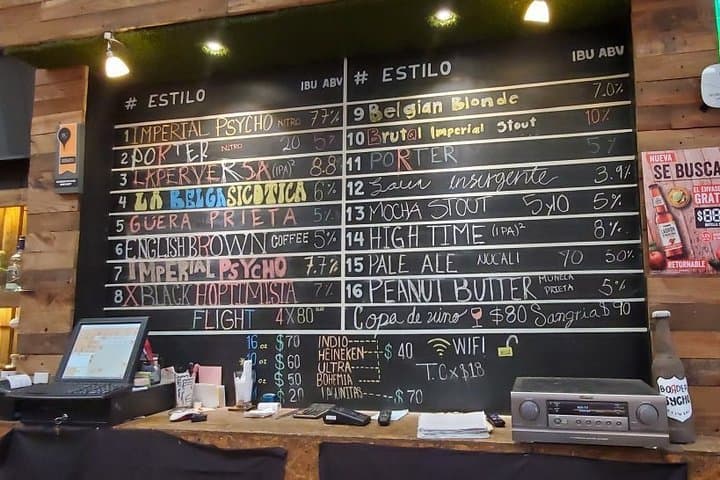 # ESTILO IBU ABV
1 IMPERIAL PSYCHO NITRO 7.7%
2 PORTER NITRO 20 5%
3 LAPERVERSA (IPA)² 8.8%
4 LA BELGASICOTICA 6%
5 GUERA PRIETA 5%
6 ENGLISH BROWN COFFEE 5%
7 IMPERIAL PSYCHO 7.7%
8 XBLACK HOPTIMISTA 7%
FLIGHT 4X80
# ESTILO IBU ABV
9 Belgian Blonde 7.0%
10 Brutal Imperial Stout 10%
11 PORTER 5%
12 Saur insurgente 3.9%
13 MOCHA STOUT 5y10 5%
14 HIGH TIME (IPA)² 8%
15 PALE ALE NUCALI 40 5.0%
16 PEANUT BUTTER MUNECA PRIETA 5%
Copa de vino $80 Sangria $90
16 oz $70
$60
oz $50
oz $20
INDIO
HEINEKEN
ULTRA
BOHEMIA
$40
LAGUNITAS $70
WIFI
T.C x $18
NUEVA
SE BUSCA
EL ENVASE
GRATIS
RETORNABLE
BORDER
PSYCHO